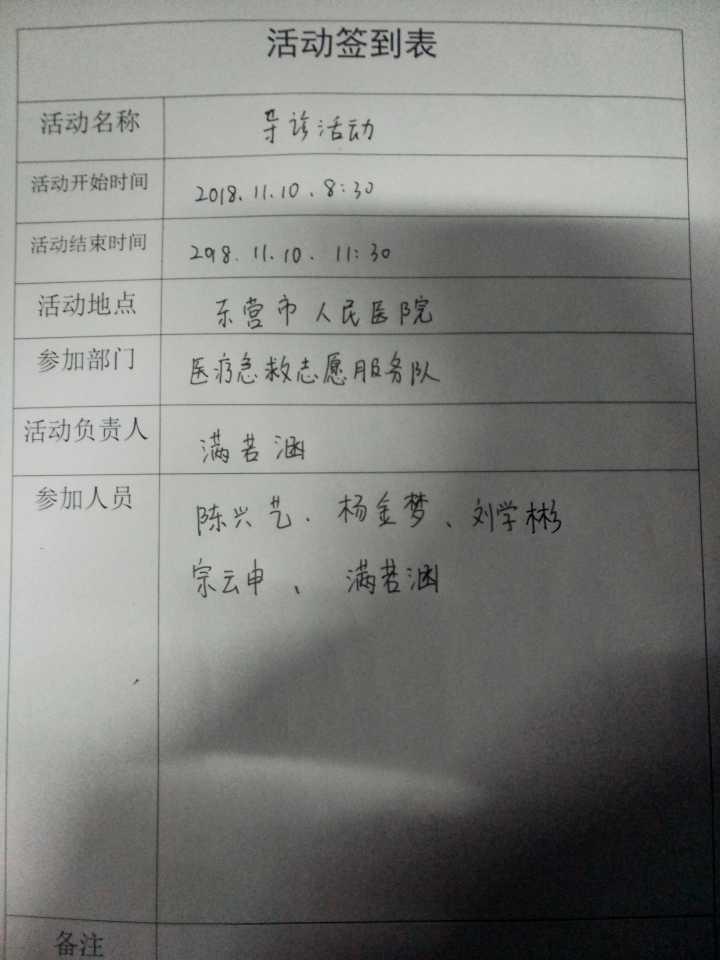 活动签到表
活动名称 导诊活动
活动开始时间 2018.11.10、8:30
活动结束时间 2018.11.10、11:30
活动地点 东营市人民医院
参加部门 医疗急救志愿服务队
活动负责人 满若涵
参加人员 陈兴艺、杨金梦、刘学彬
宗云申、满若涵
备注